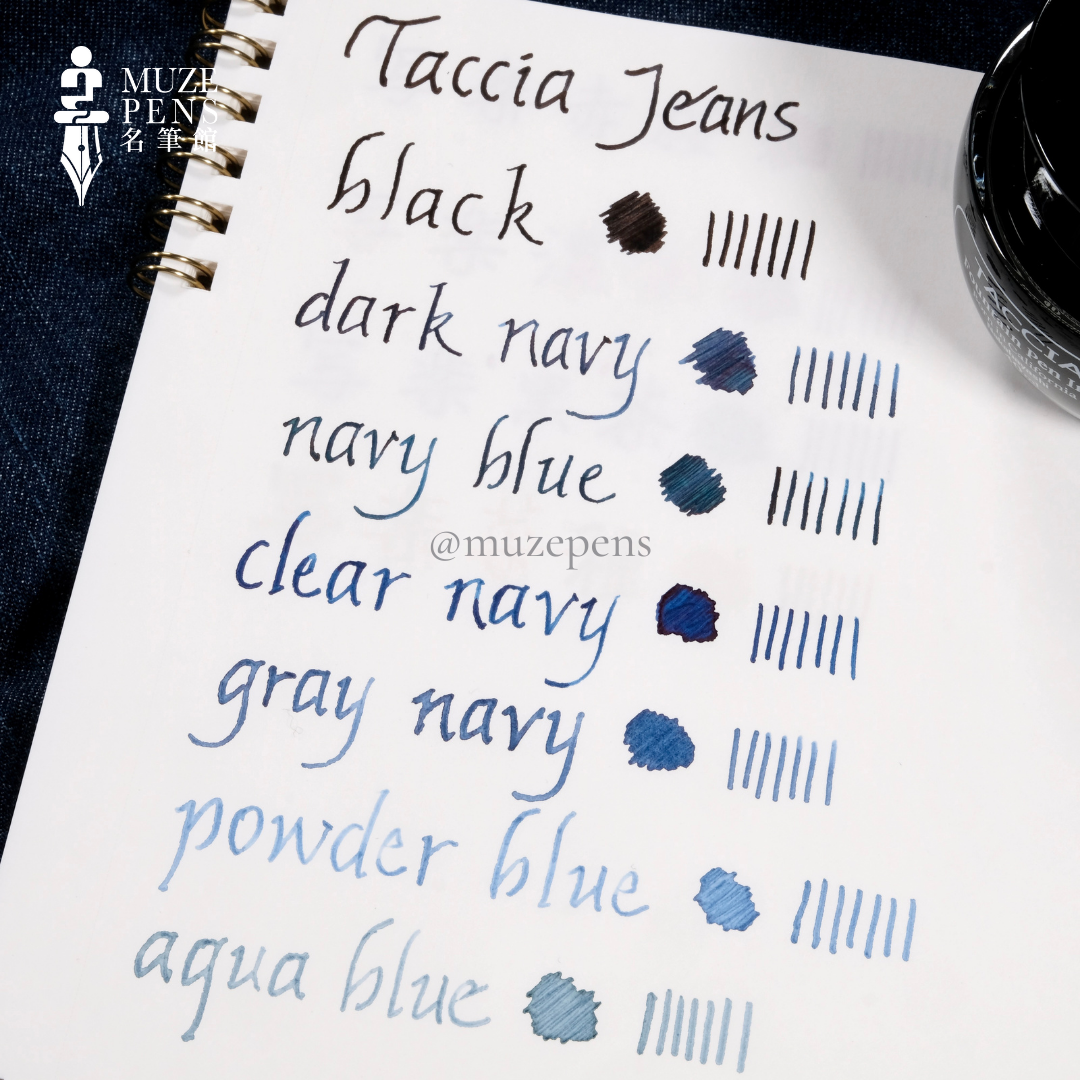 MUZE
PENS
名筆館
Taccia Jeans
black
dark navy
navy blue
clear navy
gray navy
powder blue
aqua blue
@muzepens
TACCIA